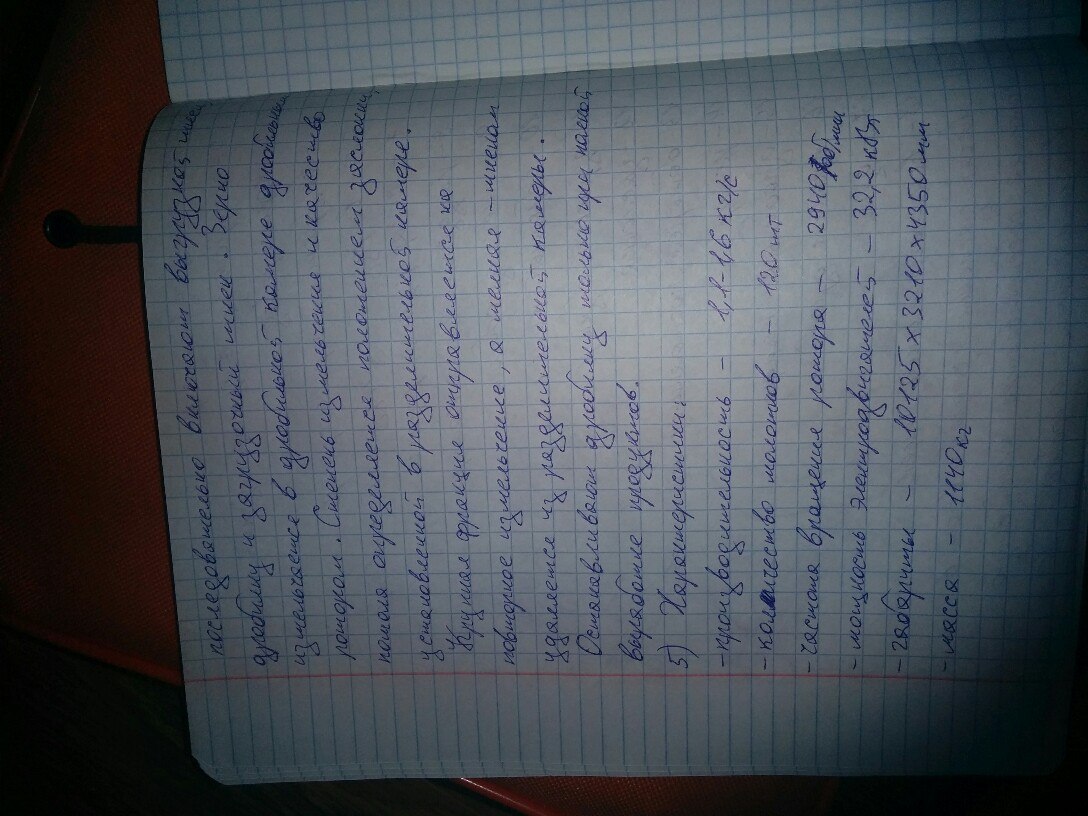 последовательно включают выгрузной шнек,
дробилку и загрузочный шнек. Зерно
измельчается в дробильной камере дробильным
ротором. Степень измельчения и качество
помола определяется положением заслонки,
установленной в разделительной камере.
Крупная фракция отправляется на
повторное измельчение, а мелкая - шнеком
удаляется из разделительной камеры.
Останавливают дробилку только при полной
выработке продуктов.
5) Характеристики:
- производительность - 1,1-1,6 кг/с
- количество молотков - 120 шт
- частота вращения ротора - 2940 об/мин
- мощность электродвигателей - 32,2 кВт
- габариты - 10125 х 3210 х 4350 мм
- масса - 1140 кг